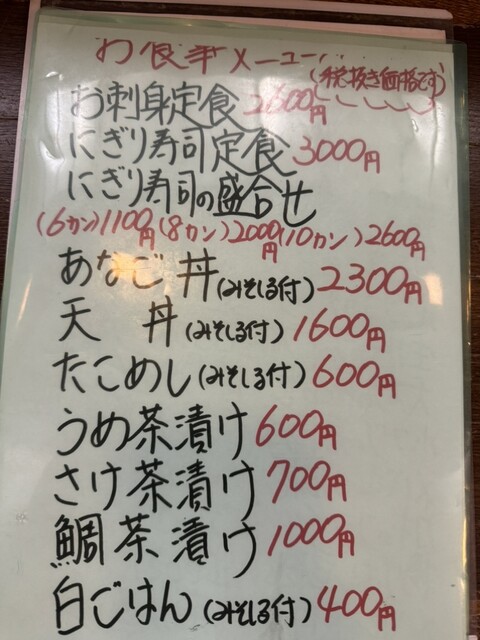 お食事メニュー
(税抜き価格です)
お刺身定食 2600円
にぎり寿司定食 3000円
にぎり寿司の盛合せ
(6カン)1100円(8カン)2000円(10カン)2600円
あなご丼(みそしる付)2300円
天 丼(みそしる付)1600円
たこめし(みそしる付)600円
うめ茶漬け600円
さけ茶漬け700円
鯛茶漬け1000円
白ごはん(みそしる付)400円